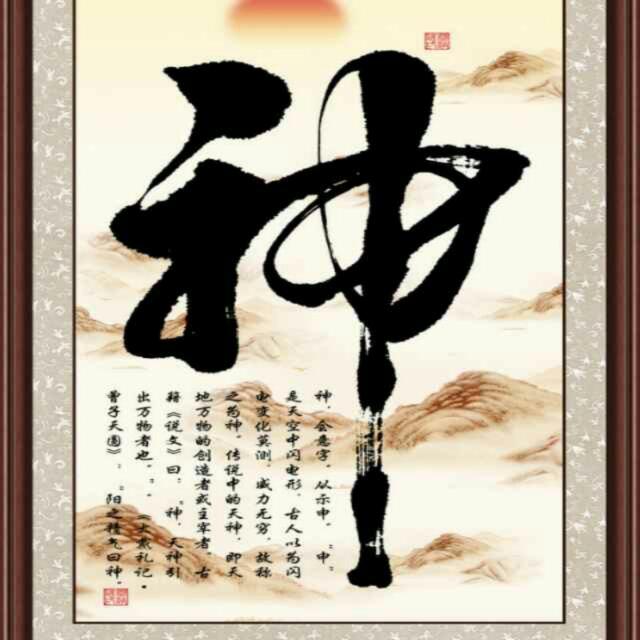 神
神，会意字，从示申。“申”
是天空中闪电形，古人以为闪
电变化莫测，威力无穷，故称
之为神。传说中的天神，即天
地万物的创造者或主宰者。古
籍《说文》曰：“神，天神引
出万物者也。”《大戴礼记·
曾子天圆》：“阳之精气曰神。